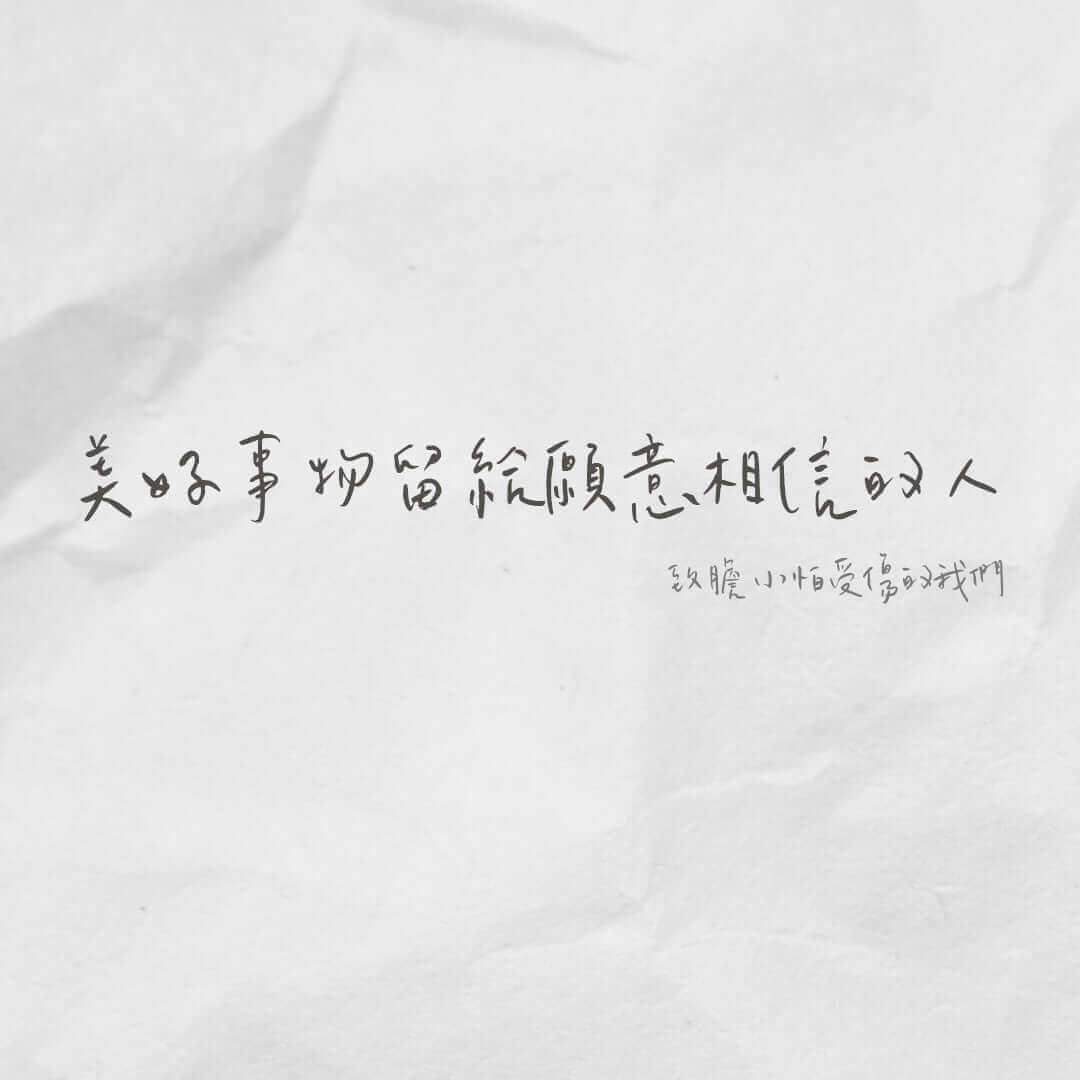 美好事物留給願意相信的人
致膽小怕受傷的我們